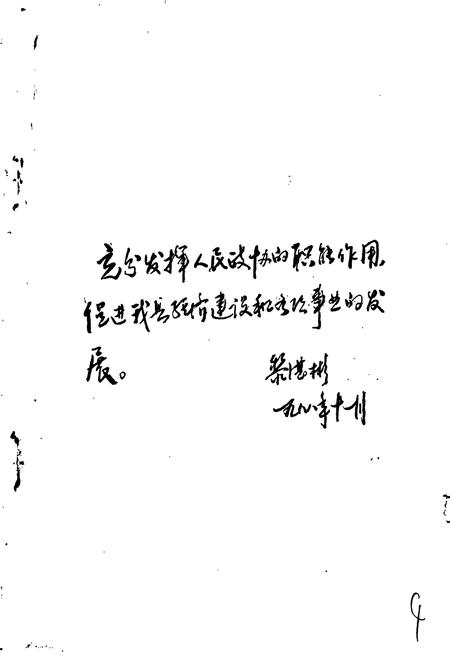 充分发挥人民政协的职能作用,
促进我县经济建设和各项事业的发
展。
黎湛彬
一九八年十一月
4